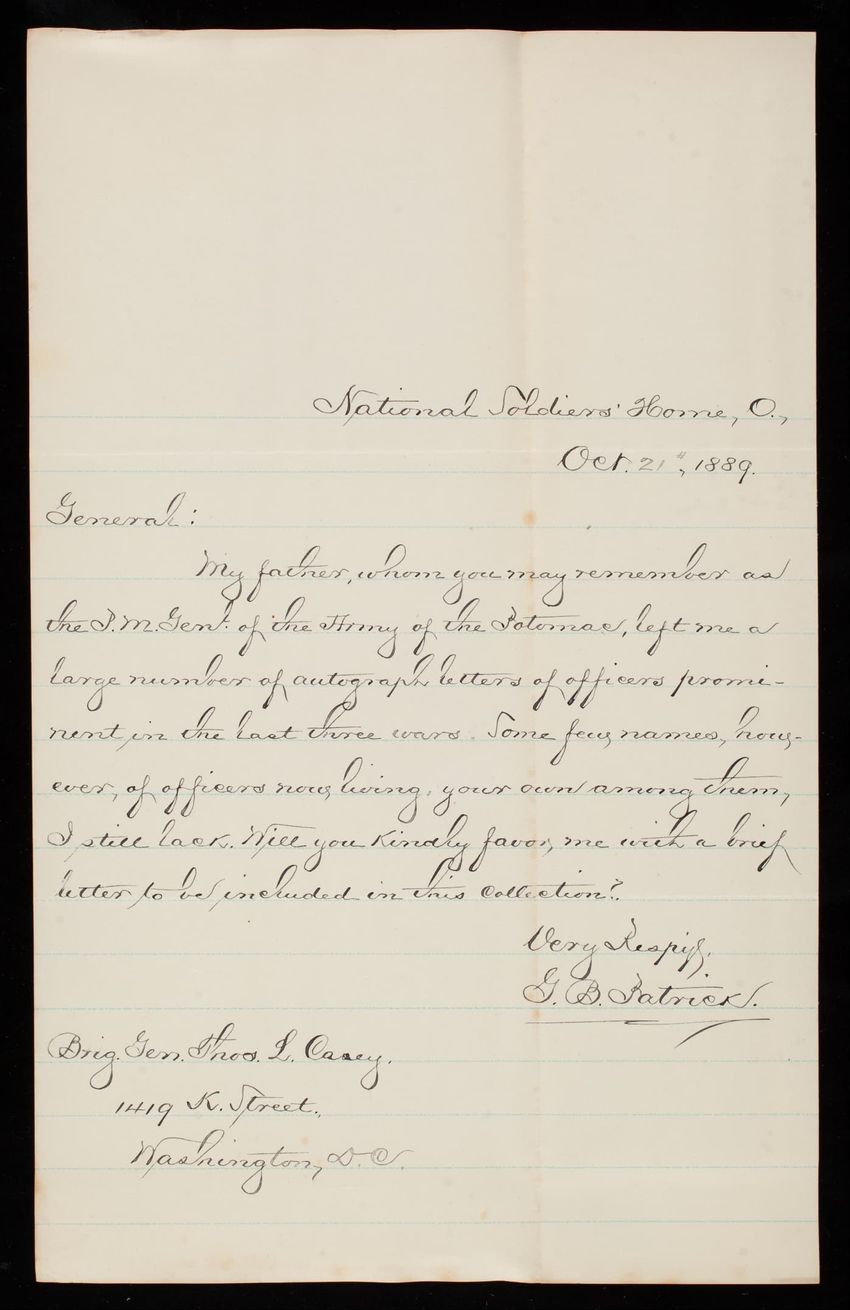 National Soldiers' Home, O.,
Oct. 21", 1889.
General:
My father, whom you may remember as
the P. M. Genl. of the Army of the Potomac, left me a
large number of autograph letters of officers promi-
nent in the last three wars. Some few names, how-
ever, of officers now living, your own among them,
I still lack. Will you kindly favor me with a brief
letter to be included in this collection?
Very Respy,
G. B. Patrick.
Brig. Gen. Thos. L. Casey,
1419 K. Street,
Washington, D.C.